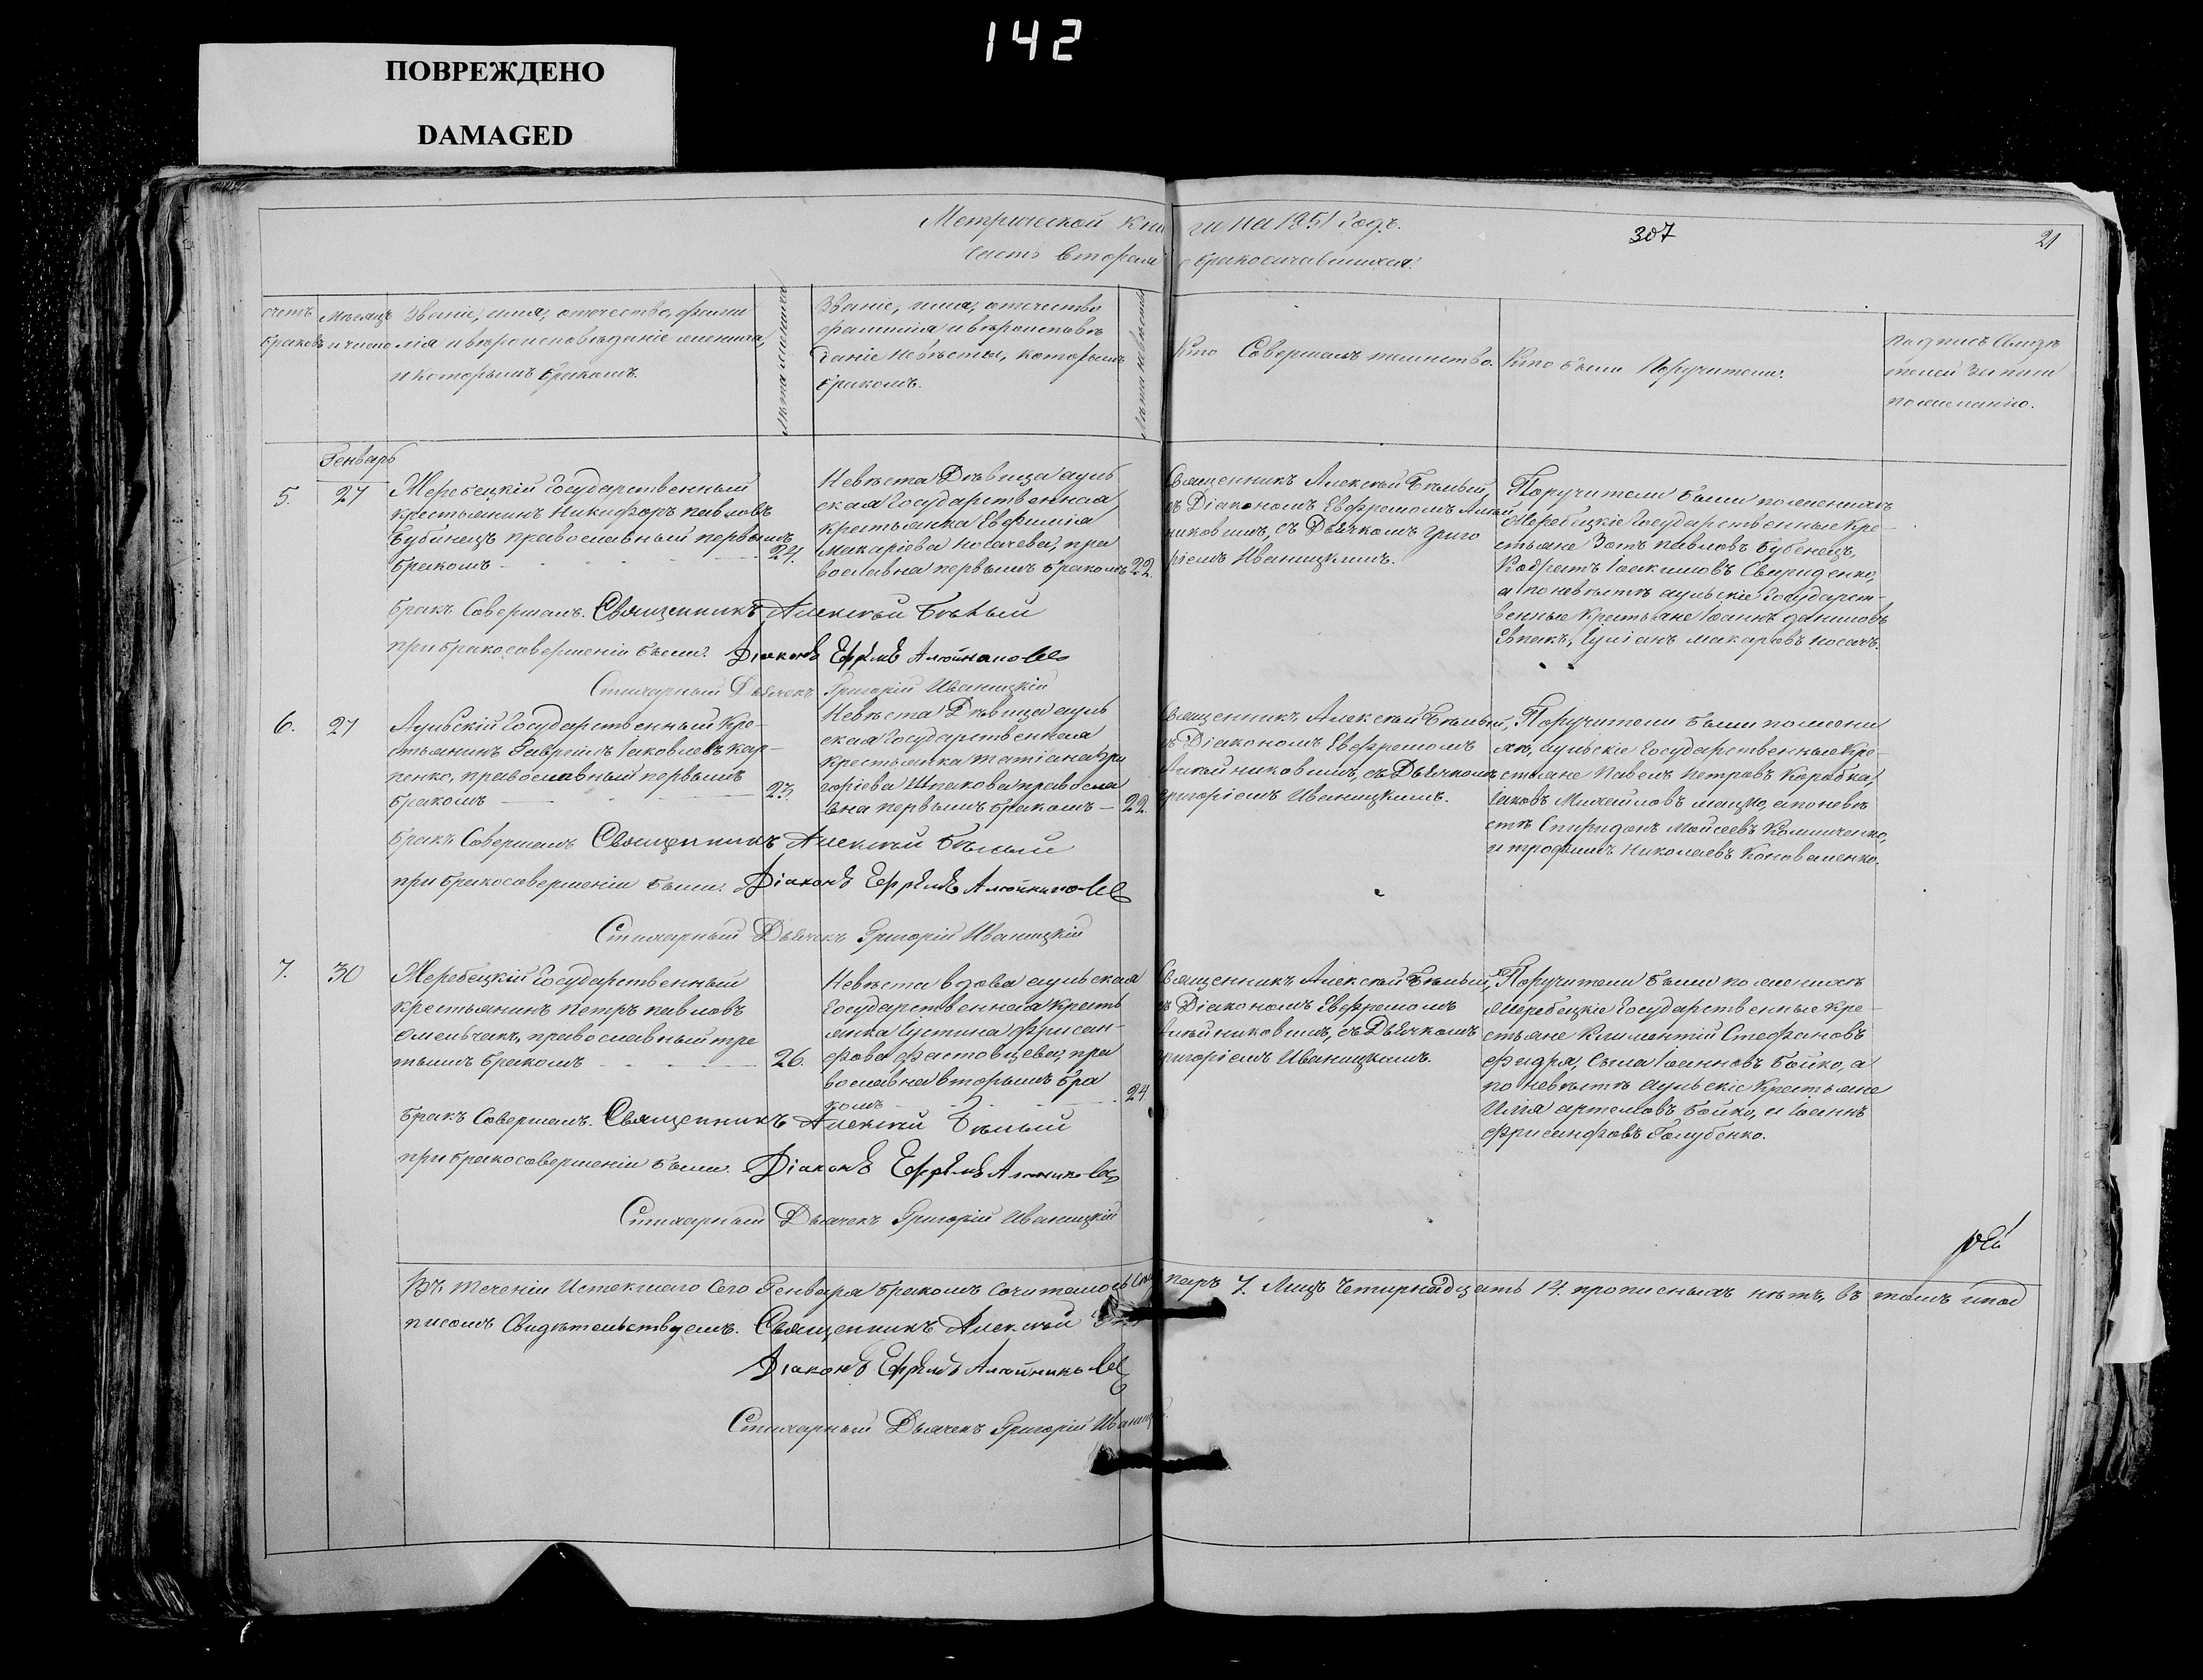 142
ПОВРЕЖДЕНО
DAMAGED
Метрической книги на 1851 годъ.
307
21
Часть вторая о бракосочавшихся.
счетъ браковъ
Мѣсяцъ и число
Званіе, имя, отечество, фами
лія и вѣроисповѣданіе жениха,
и которымъ бракомъ.
Лѣта жениха
Званіе, имя, отечество
фамилія и вѣроисповѣ
даніе невѣсты, которымъ
бракомъ.
Лѣта невѣсты
Кто совершалъ таинство.
Кто были Поручители.
подпись свидѣ
телей записи
по желанію.
Генварь
5.
27
Жеребецкій Государственный
крестьянинъ Никифоръ павловъ
Бубинецъ православный первымъ
бракомъ
24.
Невѣста Дѣвица ауль
ская Государственная
крестьянка Евфимія
Макаріева Носачева, пра
вославна первымъ бракомъ
22.
Священникъ Алексѣй Бѣлый
съ Діакономъ Евфремомъ Алѣй
никовымъ, съ Дьячкомъ Григо
ріемъ Иваницкимъ.
Поручители были по женихѣ
Жеребецкіе Государственные Кре-
стьяне Зотъ павловъ Бубенецъ,
Кодратъ Іакимовъ Свириденко,
а по невѣстѣ аульскіе Государст-
венные Крестьяне Іоаннъ даниловъ
Шпакъ, Іуліанъ макаровъ носачъ.
бракъ Совершалъ. Священникъ Алексѣй Бѣлый
при бракосовершеніи были: Діаконъ Ефремъ Алейниковъ
Стихарный Дьячекъ Григорій Иваницкій
6.
27
Аульскій Государственный Кре-
стьянинъ Гавріилъ Іаковлевъ кар-
пенко, православный первымъ
бракомъ
23.
Невѣста Дѣвица ауль
ская Государственная
крестьянка татіана Гри
горіева Шпакова правосла
вна первымъ бракомъ
22.
Священникъ Алексѣй Бѣлый,
съ Діакономъ Евфремомъ
Алѣйниковымъ, съ Дьячкомъ
григоріемъ Иваницкимъ.
Поручители были по жени
хѣ, аульскіе Государственные Кре-
стьяне Павелъ Петровъ Коробка,
Іаковъ Михайловъ мацко, а по невѣ
стѣ Спиридонъ Мойсеевъ Компиченко,
и трофимъ николаевъ Коноваленко.
бракъ Совершалъ Священникъ Алексѣй Бѣлый
при бракосовершеніи были. Діаконъ Ефремъ Алейниковъ
Стихарный Дьячекъ Григорій Иваницкій
7.
30
Жеребецкій Государственный
крестьянинъ петръ павловъ
омельчакъ, православный тре
тьимъ бракомъ
26.
Невѣста вдова аульская
Государственная кресть
янка Іустина Фрисан-
фова фастовцева, пра
вославна вторымъ бра
комъ
24.
Священникъ Алексѣй Бѣлый,
съ Діакономъ Евфремомъ
Алѣйниковымъ, съ Дьячкомъ
григоріемъ Иваницкимъ.
Поручители были по женихѣ
Жеребецкіе Государственные Кре-
стьяне Климентій Стефановъ
Фидря, Сила Іоанновъ Бойко, а
по невѣстѣ аульскіе Крестьяне
Илія артемовъ Бойко, и Іоаннъ
Фрисанфовъ Голубенко.
бракъ Совершалъ. Священникъ Алексѣй Бѣлый
при бракосовершеніи были. Діаконъ Ефремъ Алейниковъ
Стихарный Дьячекъ Григорій Иваницкій
Въ теченіи Истекшаго Сего Генваря бракомъ Сочиталось паръ 7. Лицъ четирнадцать 14. прописныхъ нѣтъ, въ томъ и под
писомъ Свидѣтельствуемъ. Священникъ Алексѣй
Діаконъ Ефремъ Алейниковъ
Стихарный Дьячекъ Григорій Иваниц